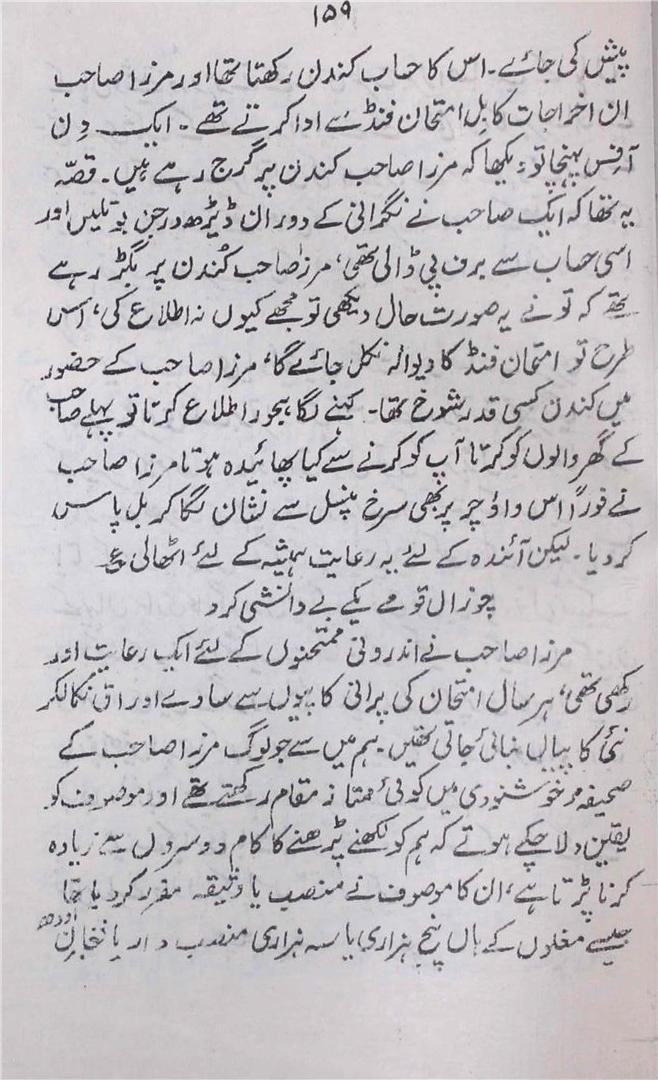 ۱۵۹
پیش کی جائے۔ اس کا حساب کندن رکھتا تھا اور مرزا صاحب
ان اخراجات کا بل امتحان فنڈ سے ادا کرتے تھے۔ ایک دن
آفس پہنچا تو دیکھا کہ مرزا صاحب کندن پر گرج رہے ہیں۔ قصّہ
یہ تھا کہ ایک صاحب نے نگرانی کے دوران ڈیڑھ درجن بوتلیں اور
اسی حساب سے برف پی ڈالی تھی، مرزا صاحب کُندن پر بگڑ رہے
تھے کہ تو نے یہ صورت حال دیکھی تو مجھے کیوں نہ اطلاع کی، اس
طرح تو امتحان فنڈ کا دیوالہ نکل جائے گا، مرزا صاحب کے حضور
میں کندن کسی قدر شوخ تھا۔ کہنے لگا، ہجور اطلاع کرتا تو پہلے صاحب
کے گھر والوں کو کرتا آپ کو کرنے سے کیا پھائیدہ ہوتا مرزا صاحب
نے فوراً اس واؤچر پر بھی سرخ پنسل سے نشان لگا کر بل پاس
کر دیا۔ لیکن آئندہ کے لئے یہ رعایت ہمیشہ کے لئے اٹھالی ع
چو زاں قومے یکے بے دانشی کرد
مرزا صاحب نے اندرونی ممتحنوں کے لئے ایک رعایت اور
رکھی تھی، ہر سال امتحان کی پرانی کاپیوں سے سادے اوراق نکالکر
نئی کاپیاں بنائی جاتی تھیں۔ ہم میں سے جو لوگ مرزا صاحب کے
صحیفہ خوشنودی میں کوئی ممتاز مقام رکھتے تھے اور موصوف کو
یقین دلا چکے ہوتے کہ ہم کو لکھنے پڑھنے کا کام دوسروں سے زیادہ
کرنا پڑتا ہے، ان کا موصوف نے منصب یا وثیقہ مقرر کر دیا تھا
جیسے مغلوں کے ہاں پنج ہزاری یا سہ ہزاری منصب دار یا نتخابان اودھ